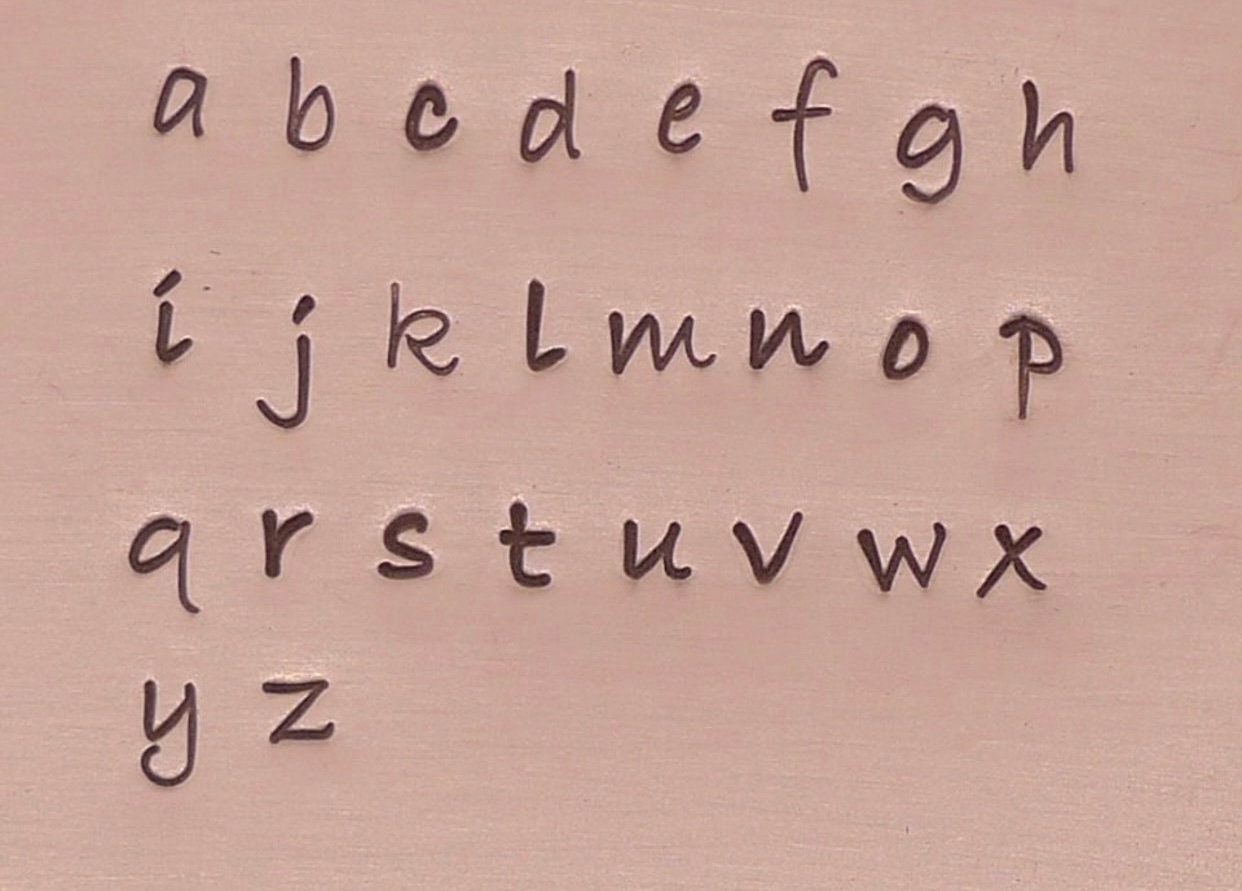 a b c d e f g h
i j k l m n o p
q r s t u v w x
y z